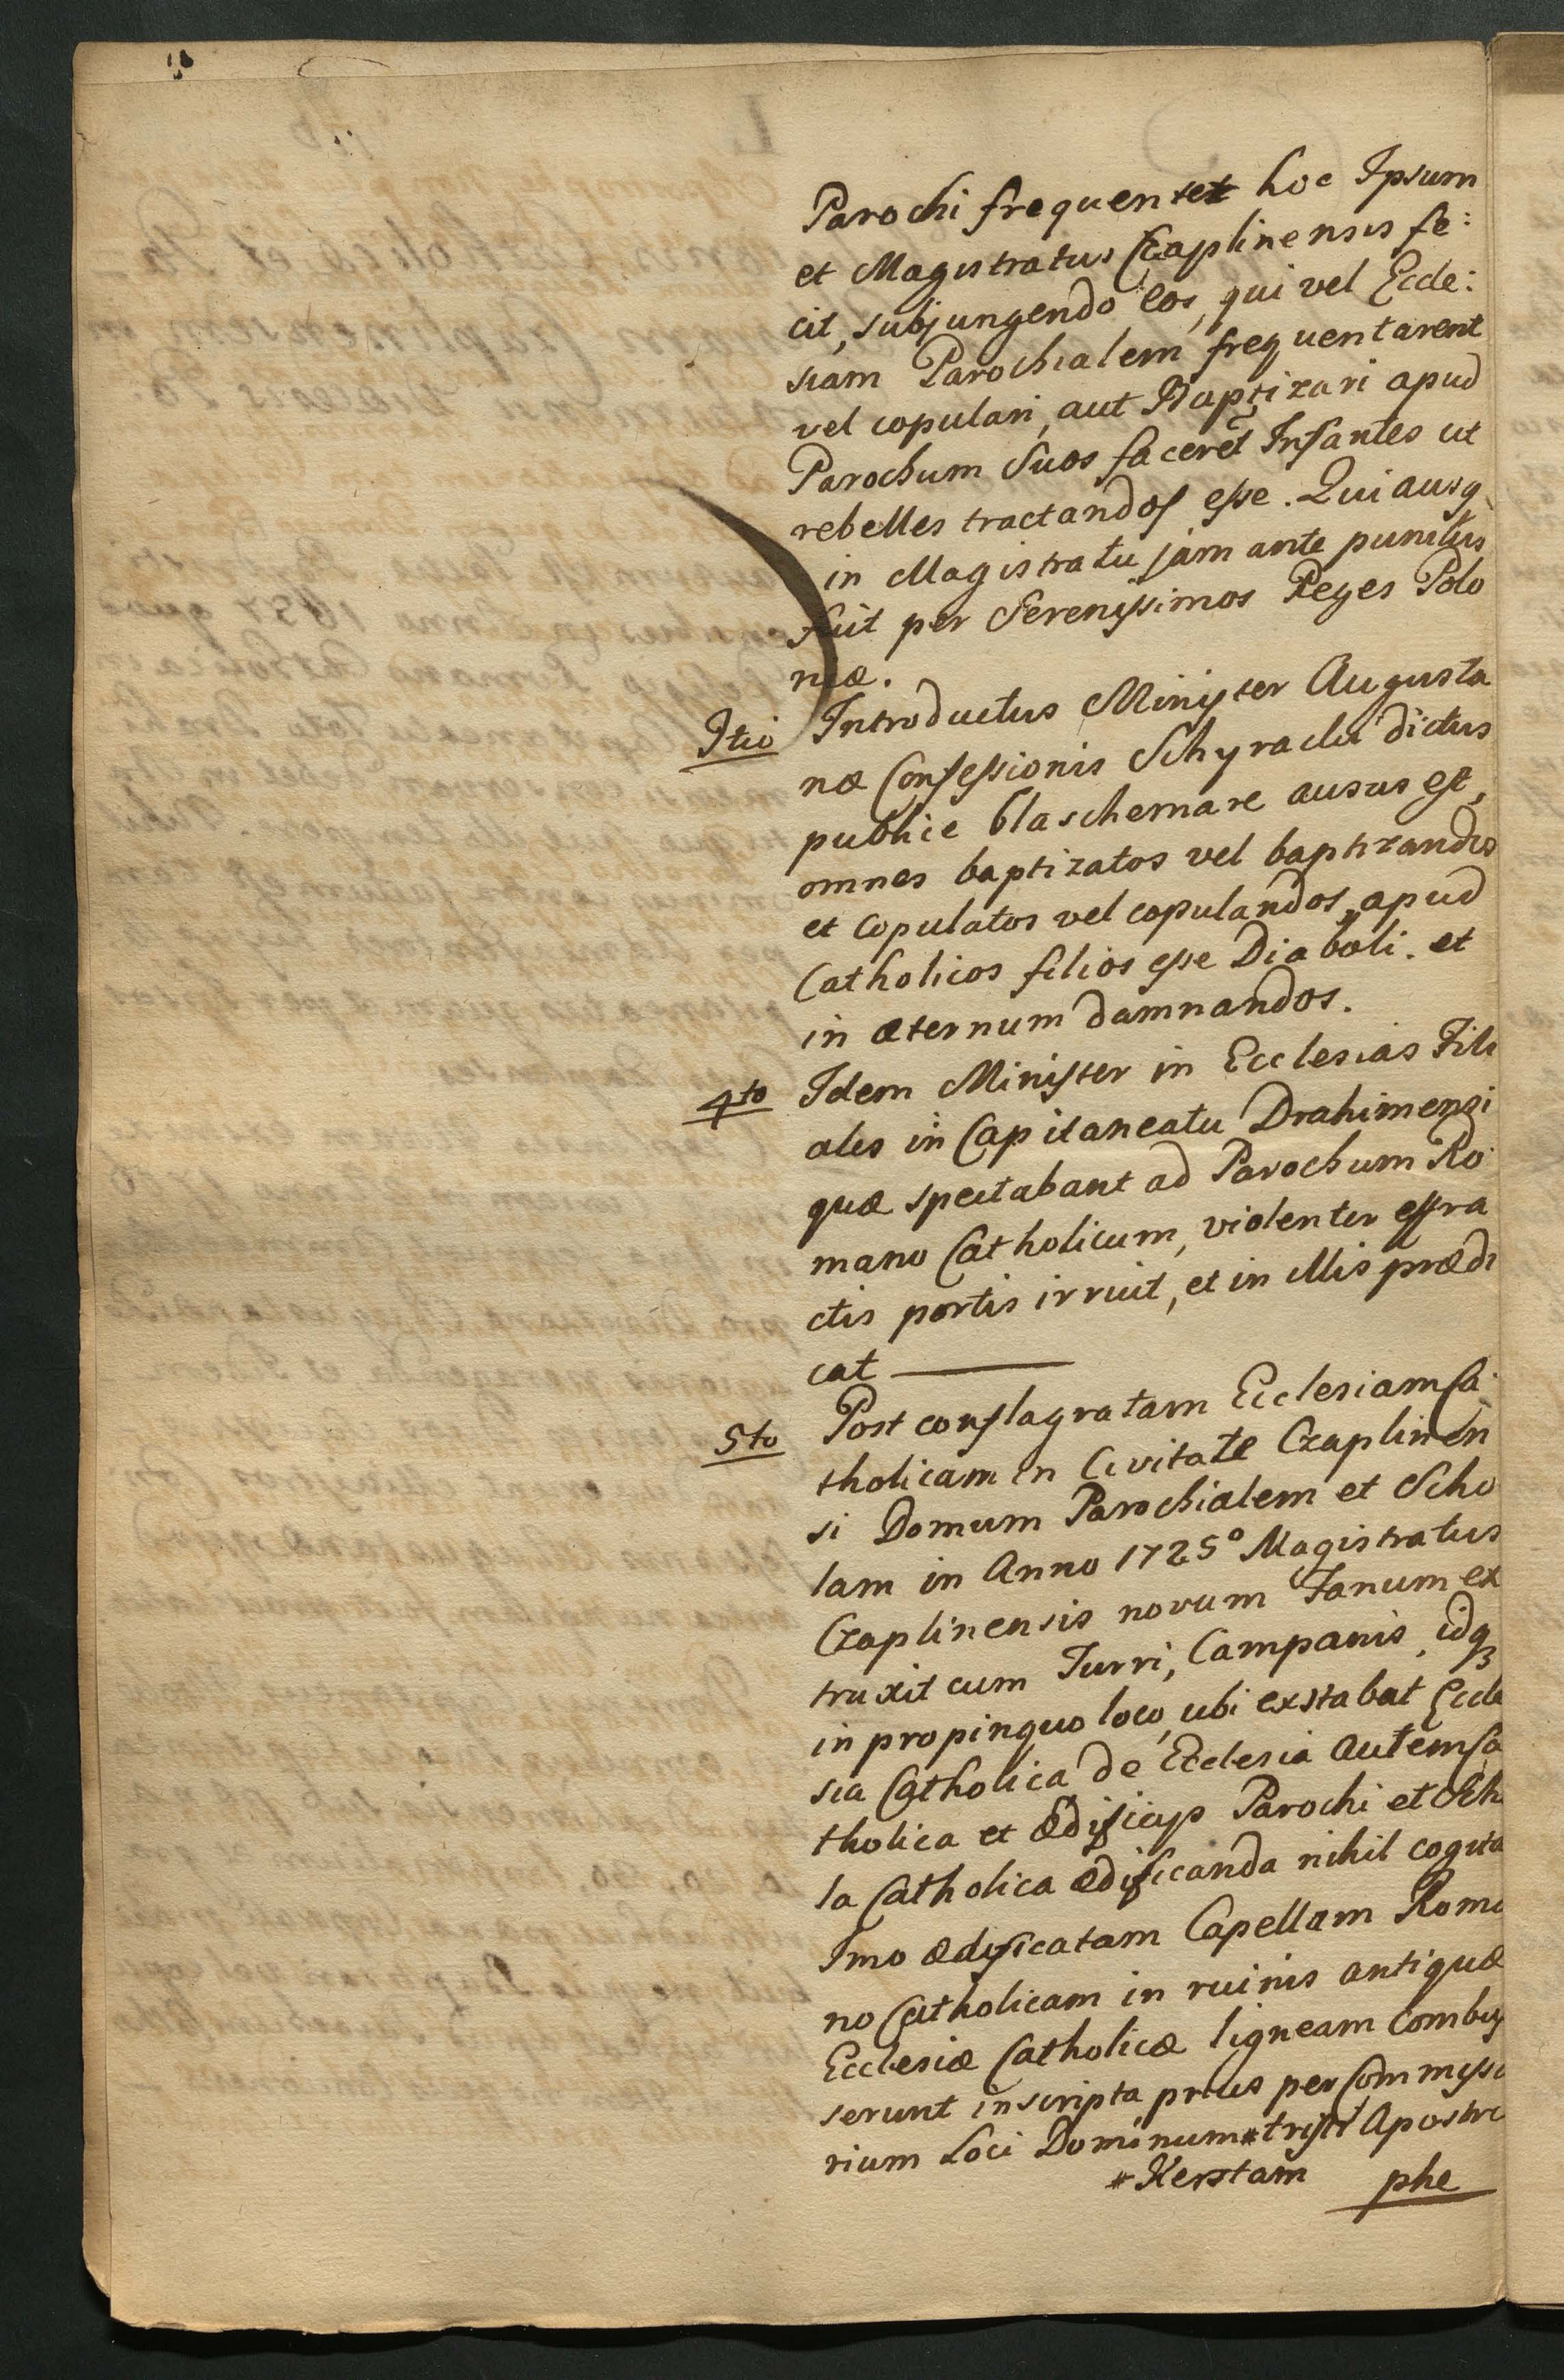 Parochi frequentet hoc Ipsum
et Magistratus Czaplinensis fe:
cit, subjungendo eos, qui vel Eccle:
siam Parochialem frequentarent
vel copulari, aut Baptizari apud
Parochum Suos faceret Infantes ut
rebelles tractandos esse. Qui ausq
in Magistratu jam ante punitus
fuit per Serenissimos Reges Polo
niæ.
3tio Introductus Minister Augusta
næ Confessionis Schyracki dictus
publice blaschemare ausus est,
omnes baptizatos vel baptizandos
et copulatos vel copulandos, apud
Catholicos filios esse Diaboli. et
in æternum damnandos.
4to Idem Minister in Ecclesias Fili
ales in Capitaneatu Drahimensi
quæ spectabant ad Parochum Ro
mano Catholicum, violenter effra
ctis portis irruit, et in illis prædi
cat
5to Post conflagratam Ecclesiam Ca
tholicam in Civitate Czaplinen
si Domum Parochialem et Scho
lam in Anno 1725° Magistratus
Czaplinensis novum Fanum ex
truxit cum Turri, Campanis, idq3
in propinquo loco, ubi exstabat Eccle
sia Catholica de Ecclesia autem Ca
tholica et Ædificijs Parochi et Sch
la Catholica ædificanda nihil cogita
Imo ædificatam Capellam Roma
no Catholicam in ruinis antiquæ
Ecclesiæ Catholicæ ligneam combus
serunt inscripta prius per Commissa
rium Loci Dominum * tristi Apostro
* Kerstam phe